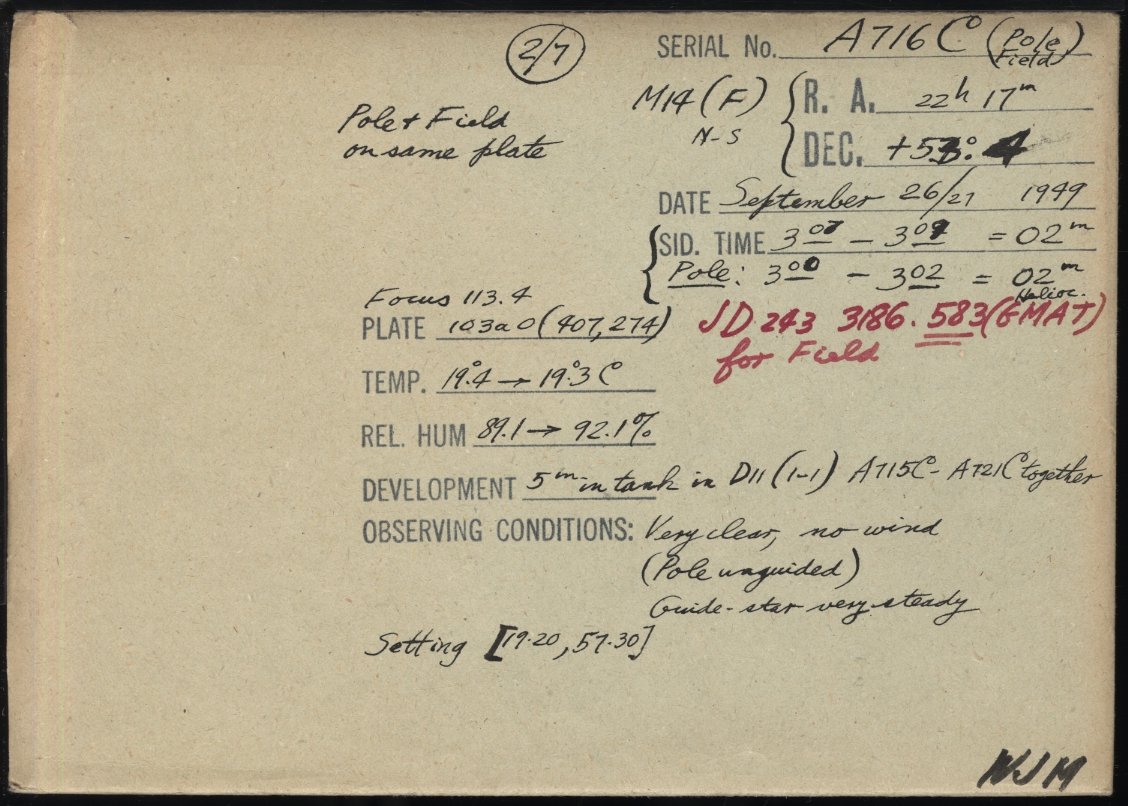 2/7
SERIAL No. A716C (Pole Field)
M14 (F) R. A. 22h 17m
N-S DEC. +53°. 4
Pole + Field
on same plate
DATE September 26/27 1949
SID. TIME 3 07 - 3 09 = 02m
Pole: 3 00 - 3 02 = 02m
Focus 113.4
Helioc.
PLATE 103aO (407,274) JD 243 3186.583 (GMAT)
for Field
TEMP. 19°.4 → 19°.3 C
REL. HUM 89.1 → 92.1%
DEVELOPMENT 5m in tank in D11 (1-1) A715C - A721C together
OBSERVING CONDITIONS: Very clear, no wind
(Pole unguided)
Guide-star very steady
Setting [19.20, 57.30]
WJM